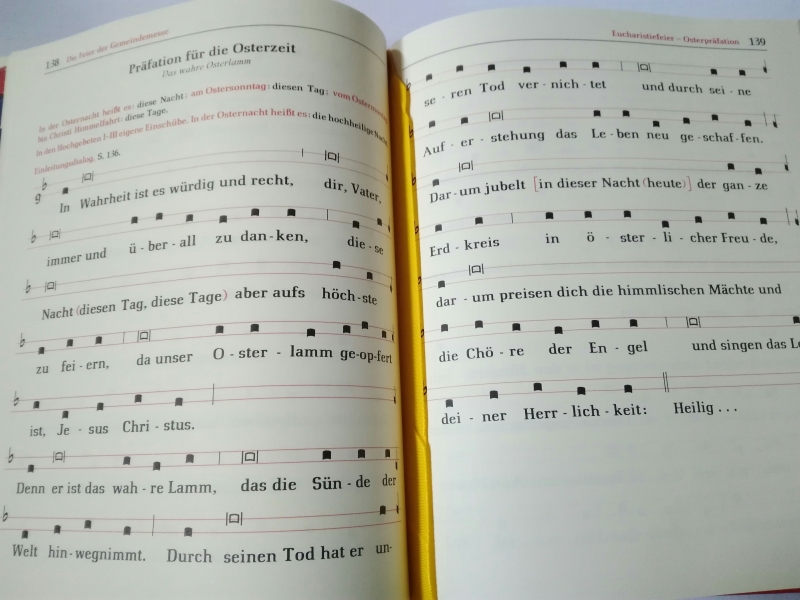 138 Die Feier der Gemeindemesse
Präfation für die Osterzeit
Das wahre Osterlamm
In der Osternacht heißt es: diese Nacht; am Ostersonntag: diesen Tag; vom Ostermontag
bis Christi Himmelfahrt: diese Tage.
In den Hochgebeten I–III eigene Einschübe. In der Osternacht heißt es: die hochheilige Nacht
Einleitungsdialog, S. 136.
In Wahrheit ist es würdig und recht, dir, Vater,
immer und ü - ber - all zu dan - ken, die - se
Nacht (diesen Tag, diese Tage) aber aufs höch - ste
zu fei - ern, da unser O - ster - lamm ge - op - fert
ist, Je - sus Chri - stus.
Denn er ist das wah - re Lamm, das die Sün - de der
Welt hin - wegnimmt. Durch seinen Tod hat er un-
Eucharistiefeier – Osterpräfation 139
se - ren Tod ver - nich - tet und durch sei - ne
Auf - er - stehung das Le - ben neu ge - schaf - fen.
Dar - um jubelt [in dieser Nacht (heute)] der gan - ze
Erd - kreis in ö - ster - li - cher Freu - de,
dar - um preisen dich die himmlischen Mächte und
die Chö - re der En - gel und singen das
dei - ner Herr - lich - keit: Heilig . . .